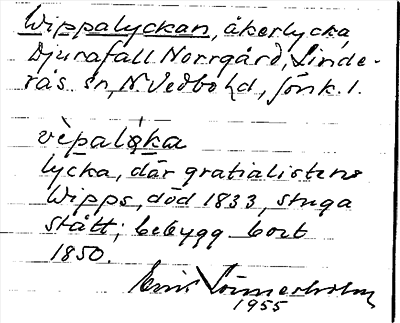 Wippalyckan, åkerlycka,
Djurafall Norrgård, Linde-
rås sn, N. Vedbo hd, Jönk. l.
vèpaløka
lycka, där gratialisten
Wipps, död 1833, stuga
stått; bebygg. bort
1850.
1955